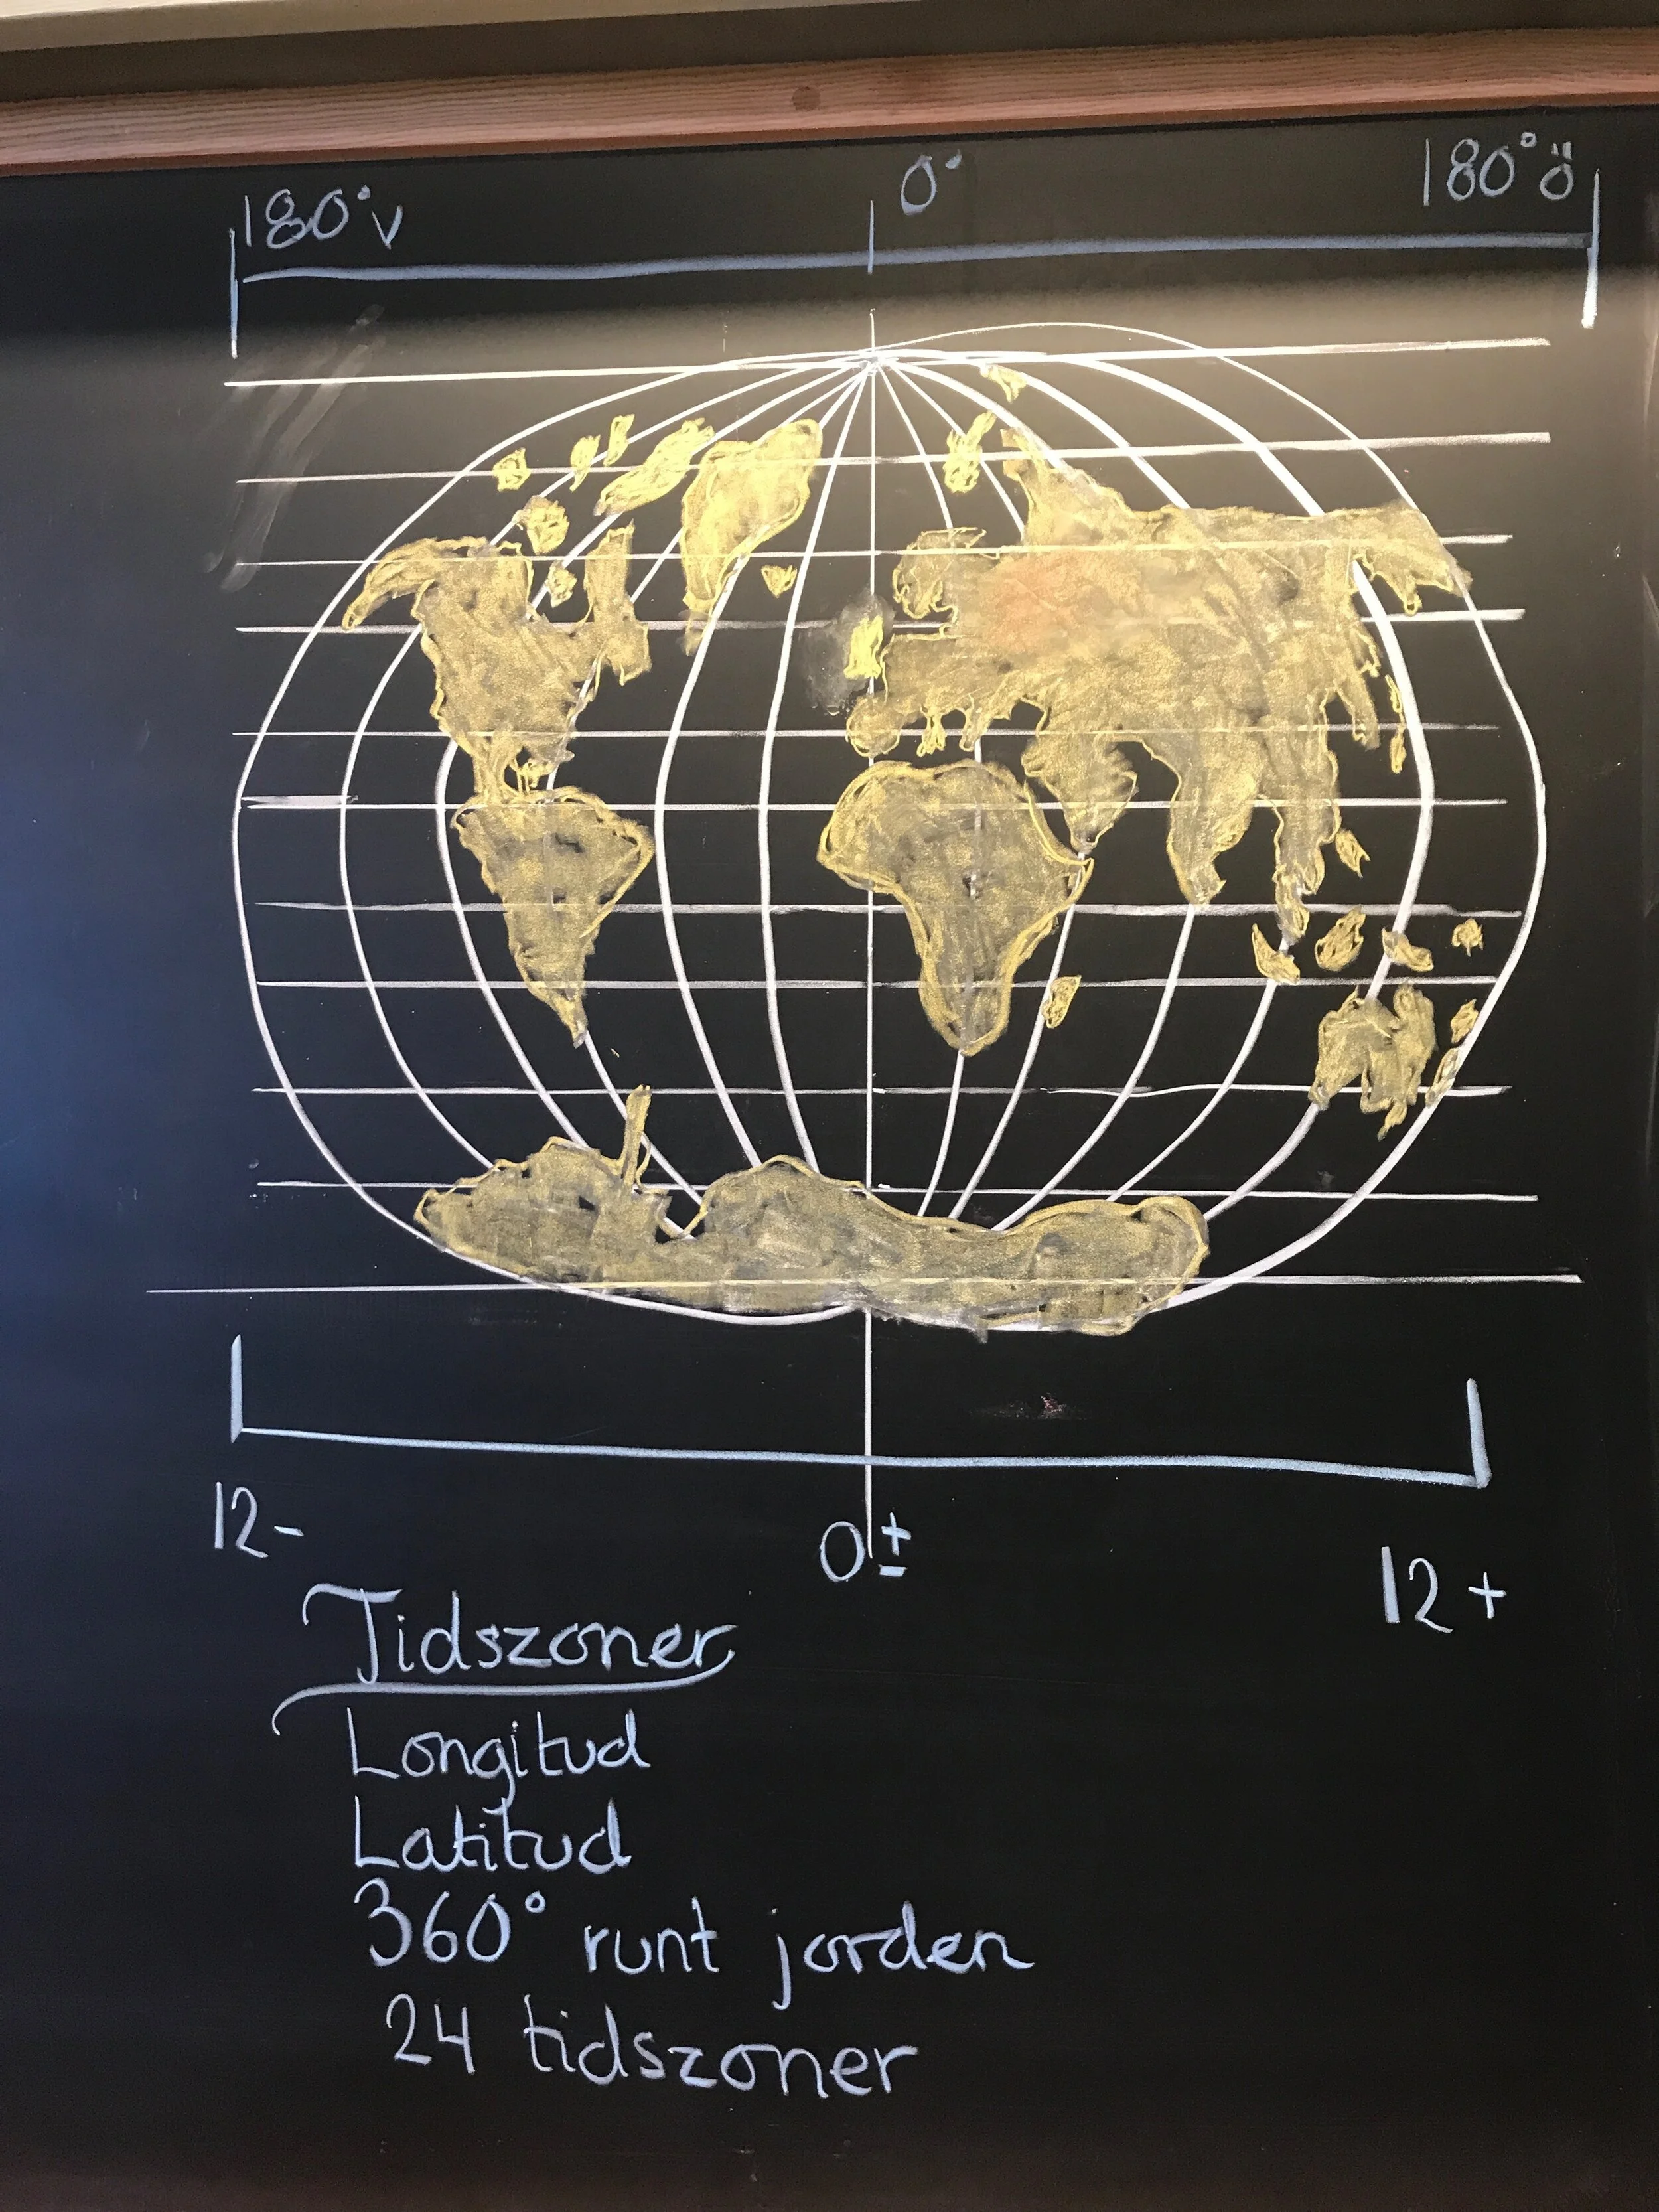 180°v 0° 180°ö
12- 0± 12+
Tidszoner
Longitud
Latitud
360° runt jorden
24 tidszoner